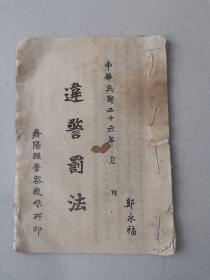 中華民國二十六年 月
郭永福
違警罰法
舞陽縣警察教練所印